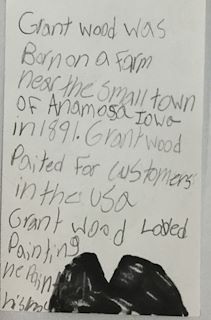 Grant wood was
Born on a Farm
near the small town
OF Anamosa Iowa
in 1891. Grant wood
Paited For customers
in the usa
Grant wood Loved
Painting
he Paint
his mo